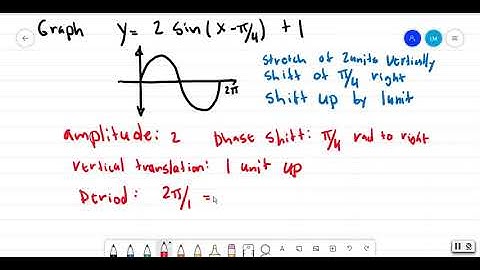 Graph y= 2 sin(x-π/4) +1
2π
stretch of 2units vertically
shift of π/4 right
shift up by 1unit
amplitude: 2 phase shift: π/4 rad to right
vertical translation: 1 unit up
Period: 2π/1 =